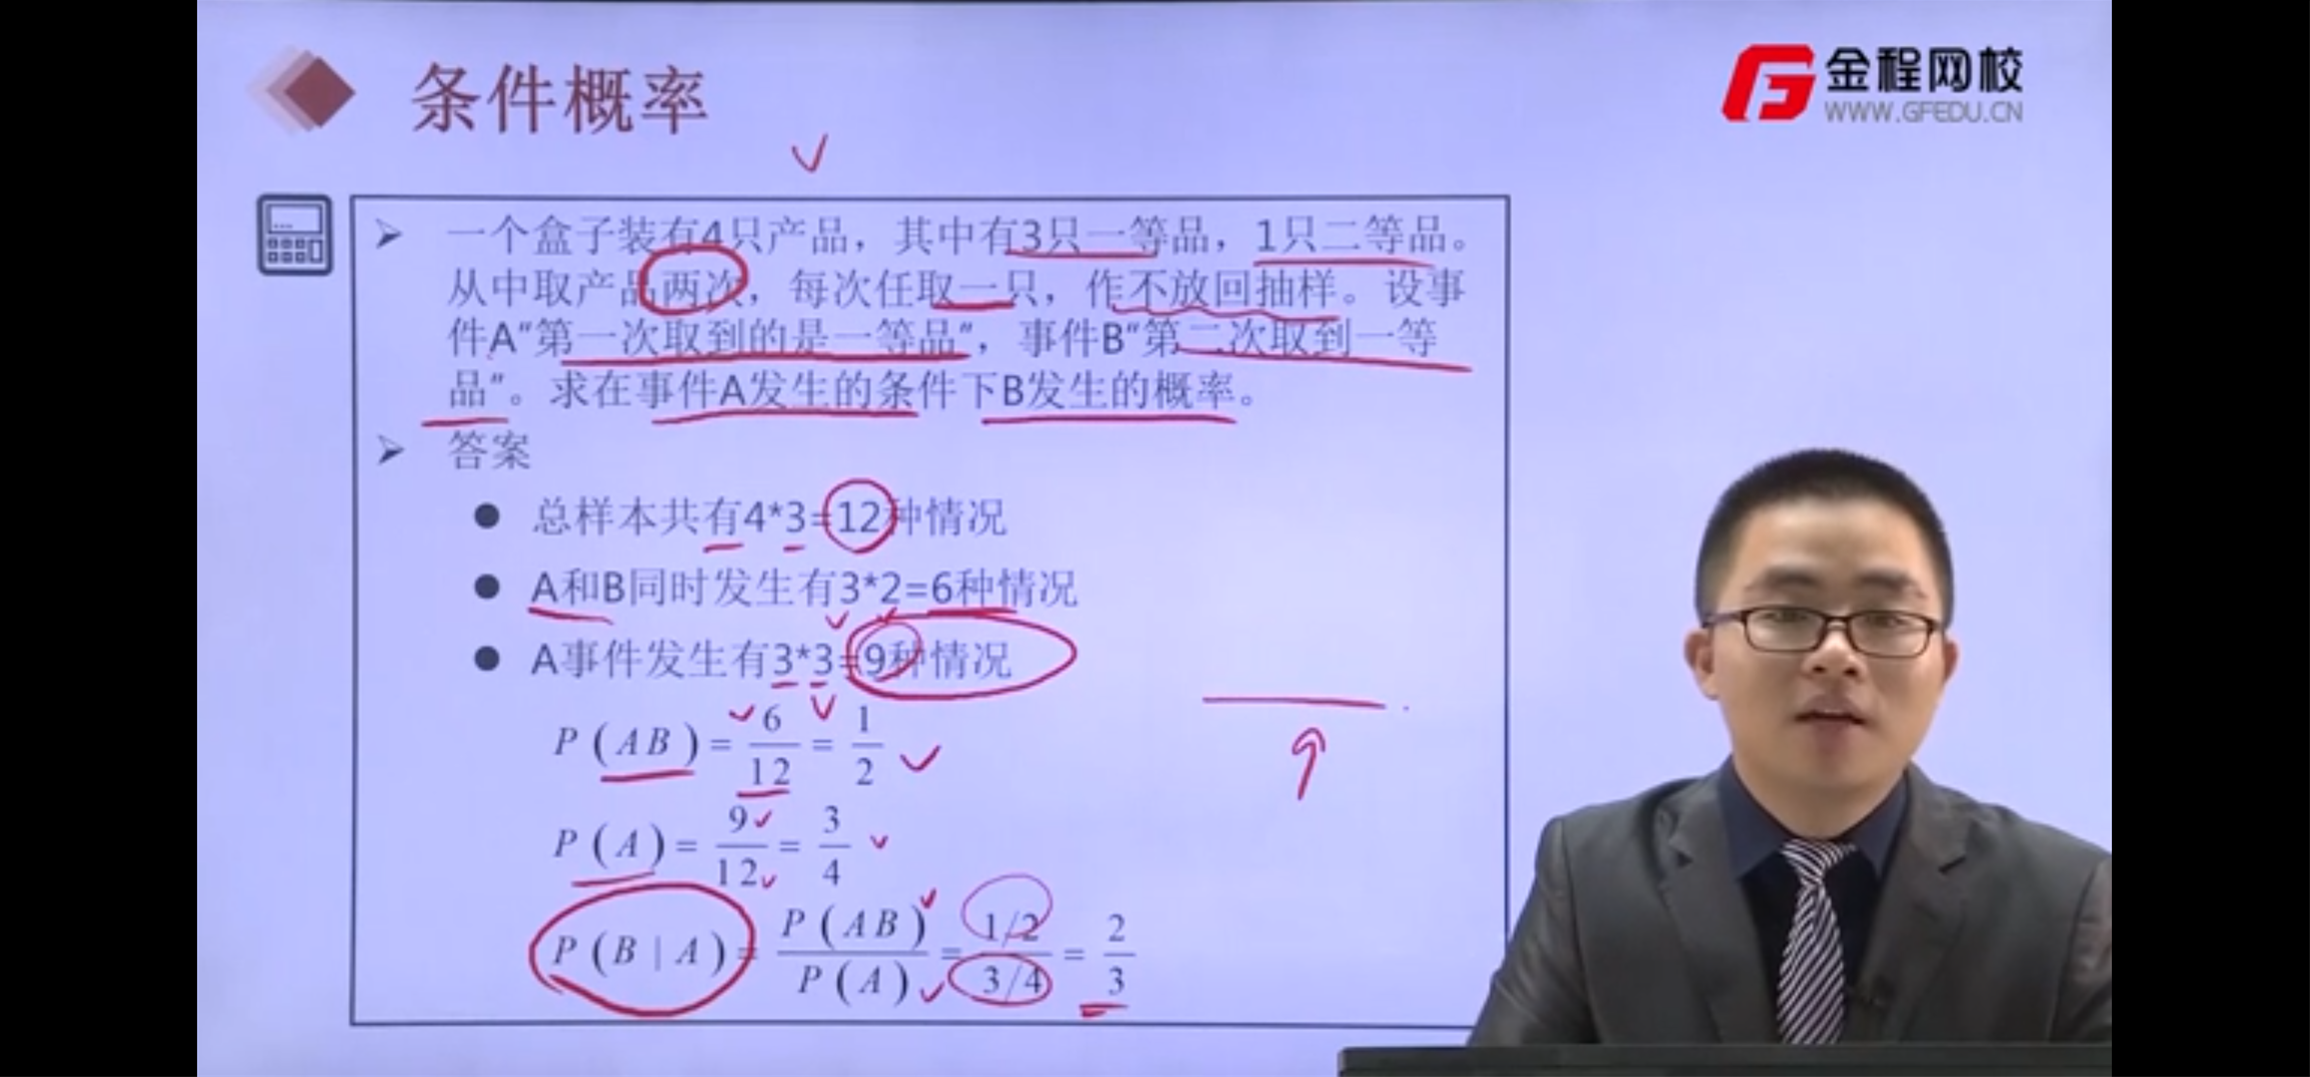 条件概率
金程网校
WWW.GFEDU.CN
一个盒子装有4只产品，其中有3只一等品，1只二等品。
从中取产品两次，每次任取一只，作不放回抽样。设事
件A"第一次取到的是一等品"，事件B"第二次取到一等
品"。求在事件A发生的条件下B发生的概率。
答案
总样本共有4*3=12种情况
A和B同时发生有3*2=6种情况
A事件发生有3*3=9种情况
P(AB)=6/12=1/2
P(A)=9/12=3/4
P(B|A)=P(AB)/P(A)=1/2/3/4=2/3